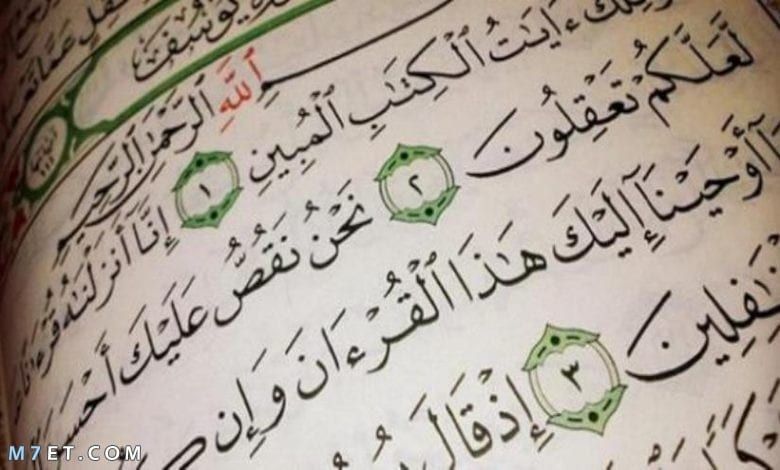 يُوسُفَ
بِسْمِ ٱللَّهِ ٱلرَّحْمَٰنِ ٱلرَّحِيمِ
ءَايَٰتُ ٱلْكِتَٰبِ ٱلْمُبِينِ ١ إِنَّآ أَنزَلْنَٰهُ قُرْءَٰنًا
لَّعَلَّكُمْ تَعْقِلُونَ ٢ نَحْنُ نَقُصُّ عَلَيْكَ أَحْسَنَ
أَوْحَيْنَآ إِلَيْكَ هَٰذَا ٱلْقُرْءَانَ وَإِن
٣ إِذْ قَالَ
M7ET.COM